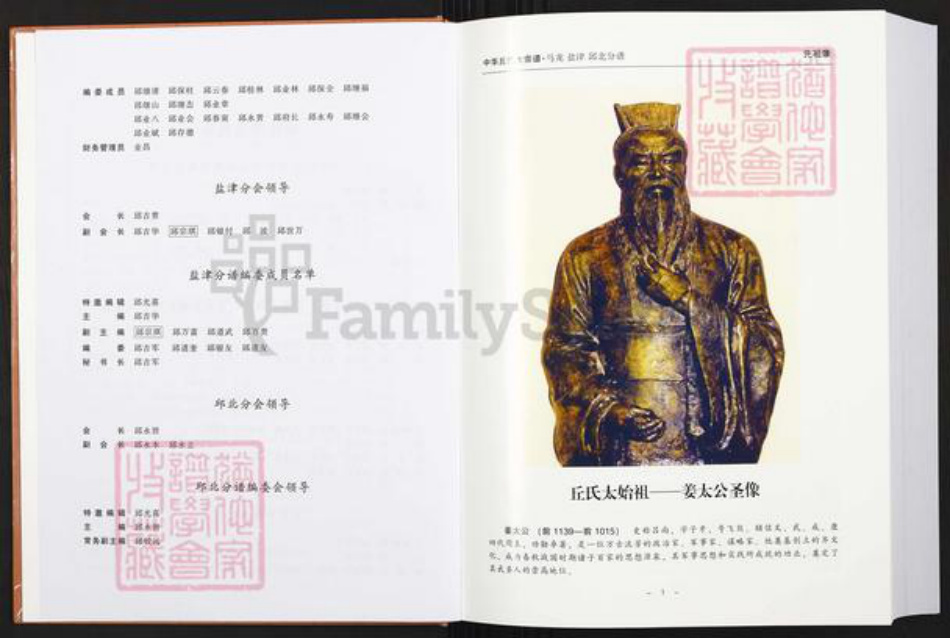 编委成员 邱继清 邱保柱 邱云春 邱桂林 邱金林 邱保全 邱继福
邱继山 邱继志 邱金章
邱金八 邱金会 邱永贵 邱永寿 邱继会
邱金斌 邱存德
财务管理员 金昌
盐津分会领导
会长 邱吉贵
副会长 邱吉华 邱宗琪 邱银付 邱波 邱世万
盐津分谱编委成员名单
特邀编辑 邱光喜
主编 邱吉华
副主编 邱宗琪 邱万富 邱道武 邱百贵
编委 邱吉军 邱道奎 邱银友
秘书长 邱吉军
邱北分会领导
会长 邱永贵
副会长 邱永本
邱北分谱编委会领导
特邀编辑 邱光喜
主编
常务副主编
FamilyS
中华丘 大宗谱·马龙 盐津 邱北分谱
先祖像
丘氏太始祖——姜太公圣像
姜太公 (前1139—前1015) 史称吕尚,字子牙,号飞熊,辅佐文、武、成、康
四代周王,功勋卓著,是一位万古流芳的政治家、军事家、谋略家。他奠基创立的齐文
化,成为春秋战国时期诸子百家的思想源泉。其军事思想和实践所成就的伟业,奠定了
其武圣人的崇高地位。
- 1 -